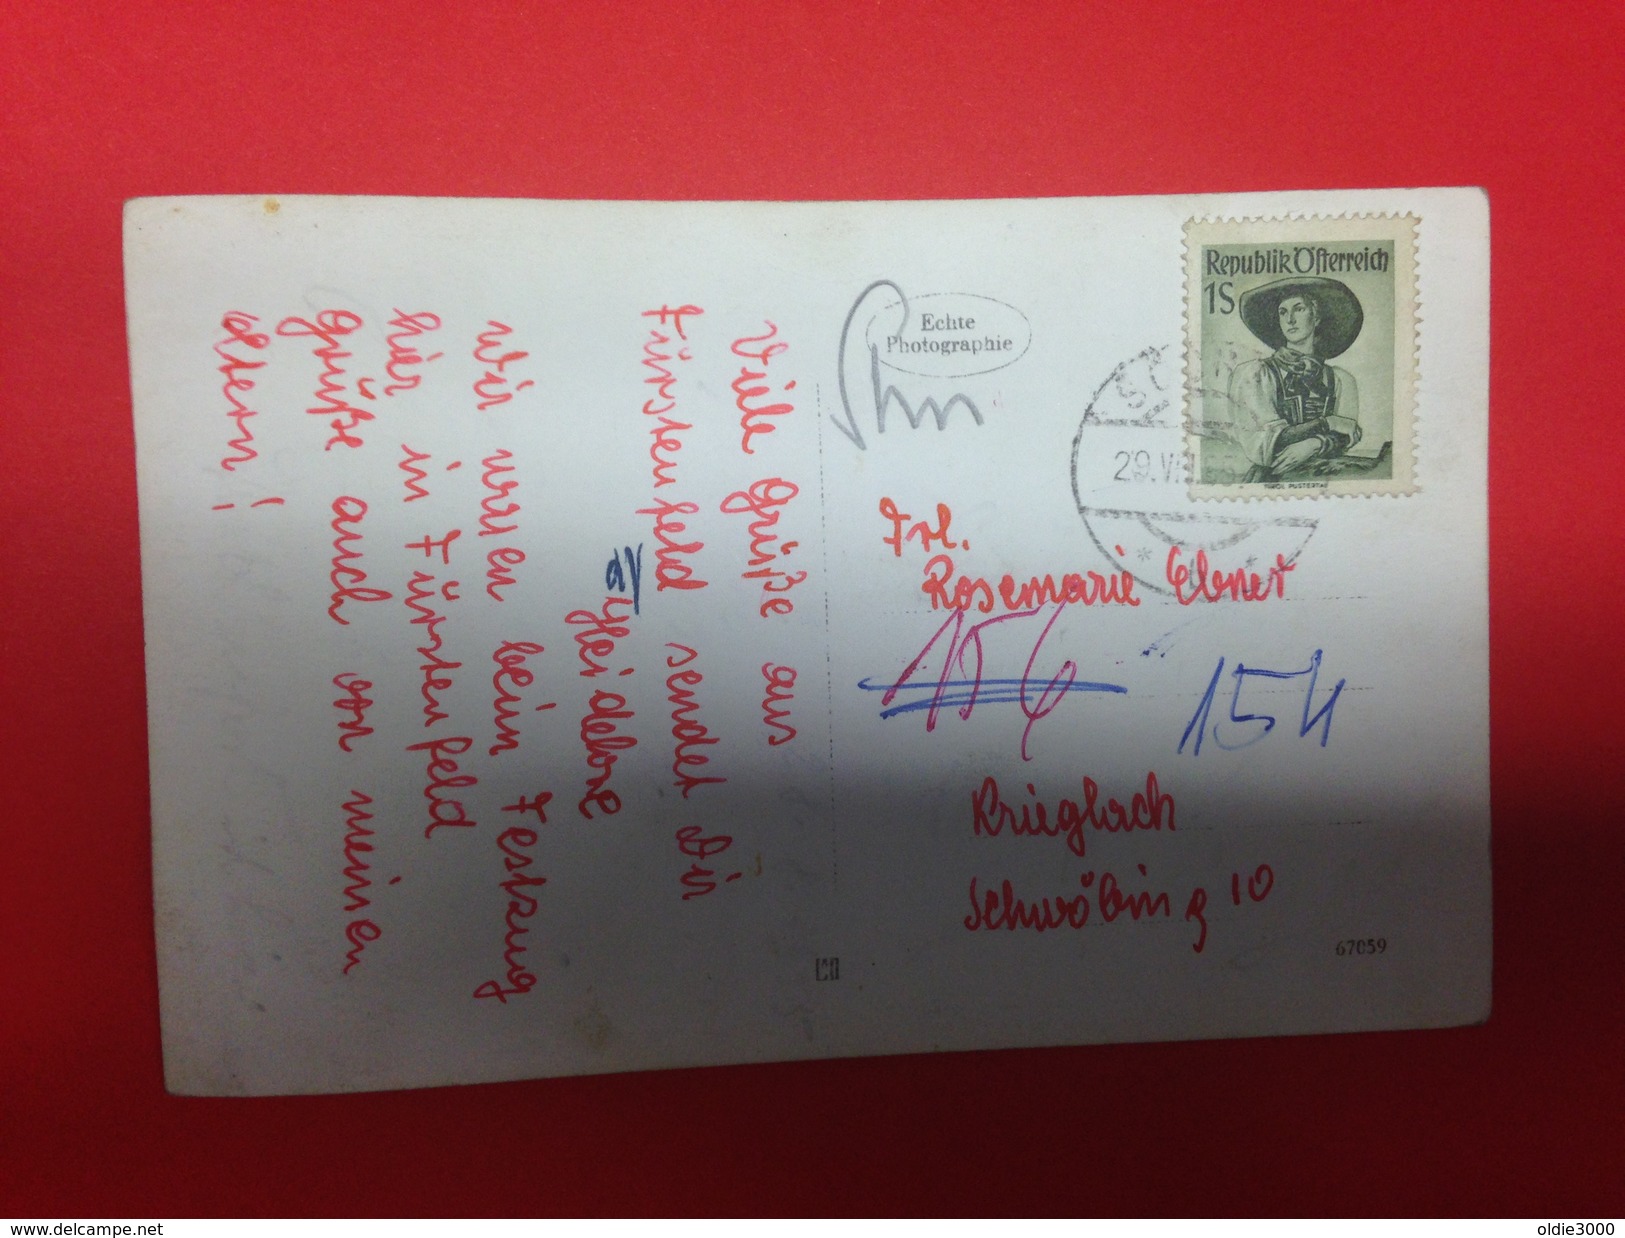 Viele Grüße aus
Fürstenfeld sendet Dir
Heidelore
Wir waren beim Festzug
hier in Fürstenfeld
Grüße auch von meinen
Eltern!
Echte
Photographie
Republik Österreich
1S
TIROL PUSTERTAL
29.VI
Frl.
Rosemarie Ebner
156
154
Krieglach
Schwöbing 10
67059
www.delcampe.net
oldie3000